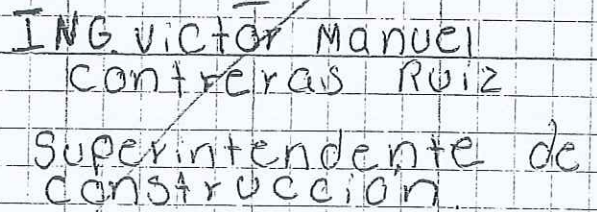 ING. Victor Manuel
contreras Ruiz
Superintendente de
construccion.